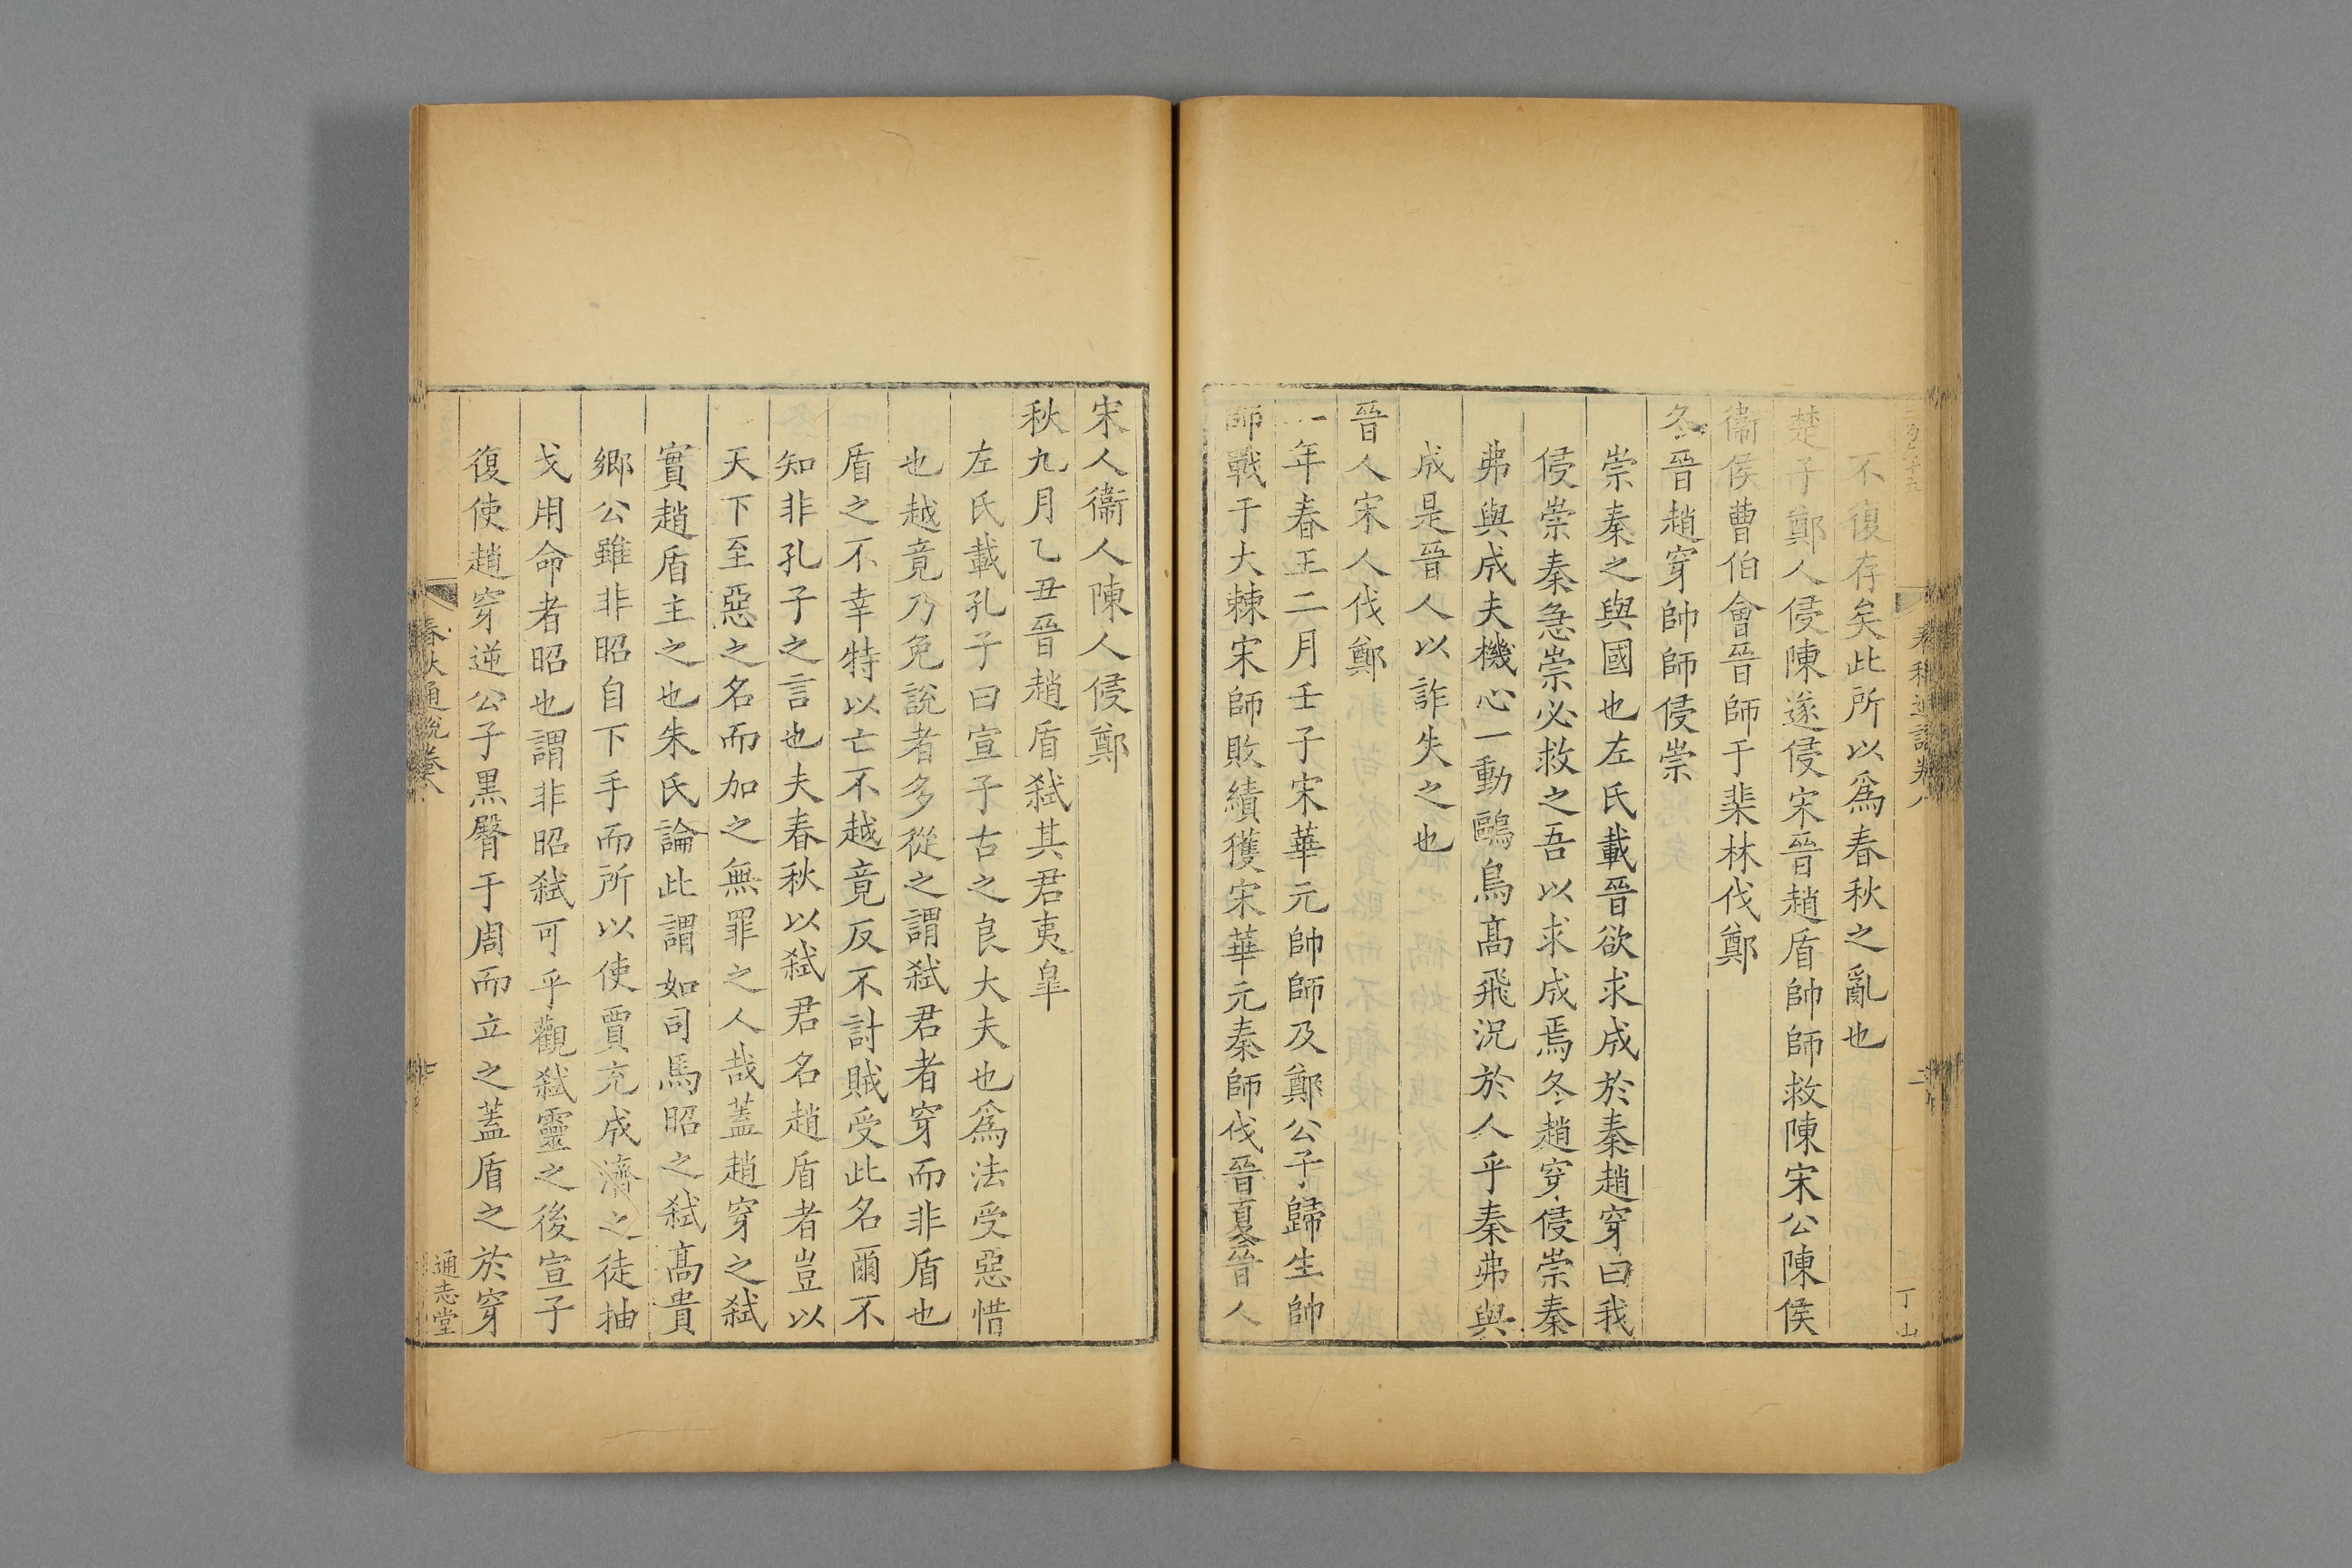 不復存矣此所以爲春秋之亂也
楚子鄭人侵陳遂侵宋晉趙盾帥師救陳宋公陳侯
衞侯曹伯會晉師于棐林伐鄭
冬晉趙穿帥師侵崇
崇秦之與國也左氏載晉欲求成於秦趙穿曰我
侵崇秦急崇必救之吾以求成焉冬趙穿侵崇秦
弗與成夫機心一動鷗鳥高飛況於人乎秦弗與
成是晉人以詐失之也
晉人宋人伐鄭
年春王二月壬子宋華元帥師及鄭公子歸生帥
師戰于大棘宋師敗績獲宋華元秦師伐晉夏晉人
宋人衞人陳人侵鄭
秋九月乙丑晉趙盾弑其君夷臯
左氏載孔子曰宣子古之良大夫也爲法受惡惜
也越竟乃免說者多從之謂弑君者穿而非盾也
盾之不幸特以亡不越竟反不討賊受此名爾不
知非孔子之言也夫春秋以弑君名趙盾者豈以
天下至惡之名而加之無罪之人哉蓋趙穿之弑
實趙盾主之也朱氏論此謂如司馬昭之弑高貴
鄉公雖非昭自下手而所以使賈充成濟之徒抽
戈用命者昭也謂非昭弑可乎觀弑靈之後宣子
復使趙穿逆公子黑臀于周而立之蓋盾之於穿
春秋通說卷八
通志堂